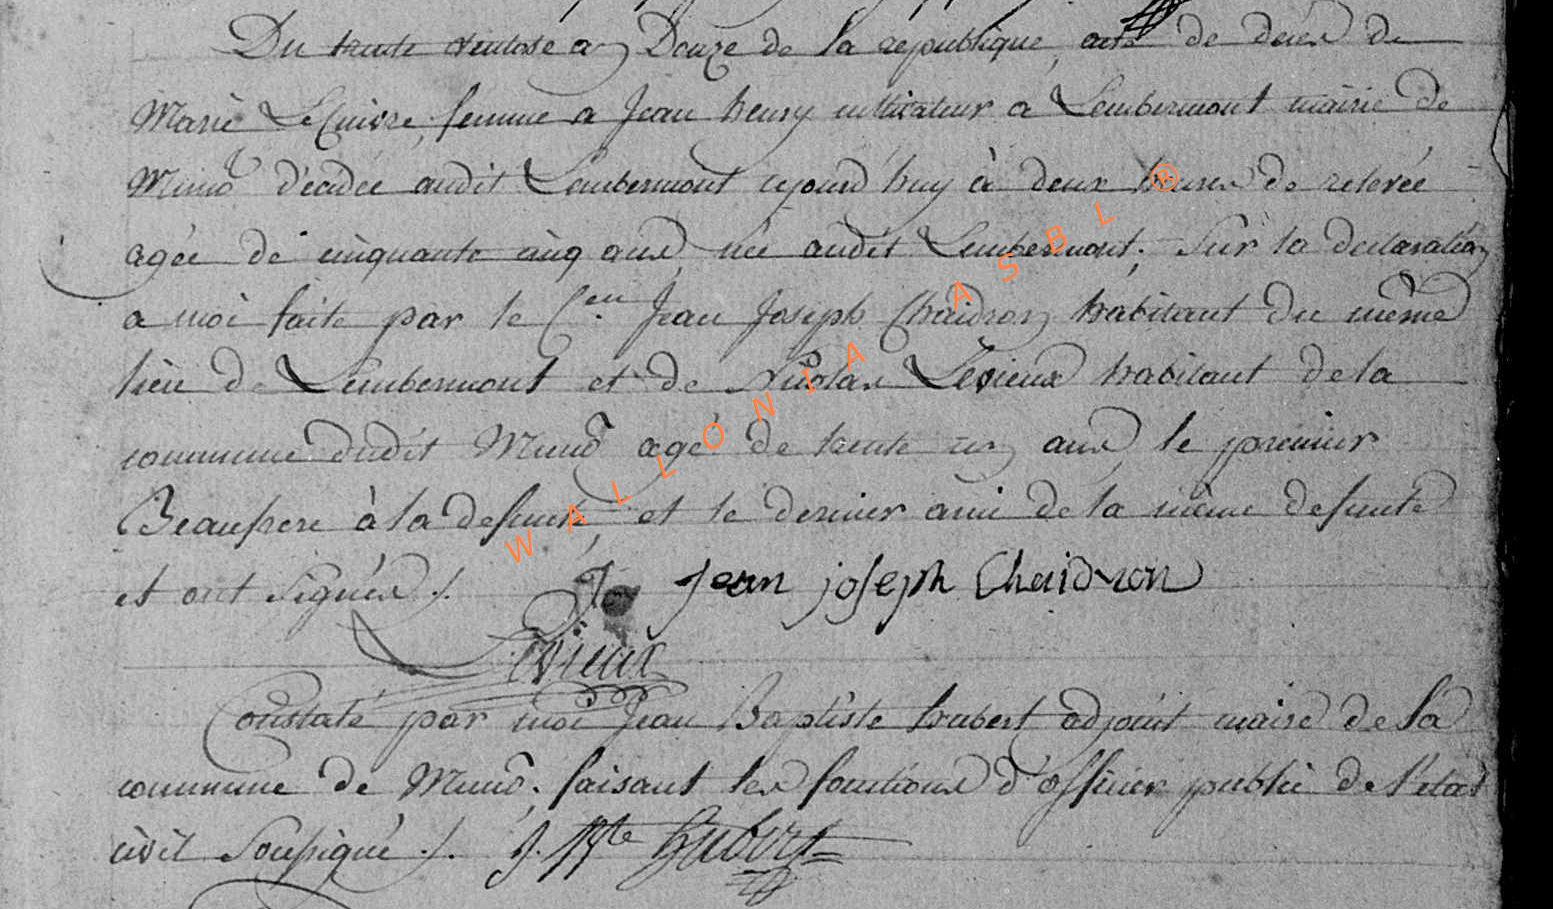 Du trente ventose an Douze de la republique, acte de deces de
Marie LeCuivre, femme a Jean henry cultivateur a Lembermont mairie de
Muno décedée audit Lembermont cejourd'huy à deux heures de relevée
agée de cinquante cinq ans née audit Lembermont; Sur la declaration
a moi faite par le C.en Jean Joseph Chaidron habitant du même
lieu de Lembermont et de Nicolas Levieux habitant de la
commune dudit Muno agé de trente ans le premier
Beaufrere à la defunte, et le dernier ami de la même defunte
et ont signés /.
Jean joseph Chaidron
Levieux
Constaté par moi Jean Baptiste hubert adjoint maire de la
commune de Muno; faisant les fonctions d'officier public de l'etat
civil Soussigné /. J. Bte Hubert
WALLONIA ASBL ®